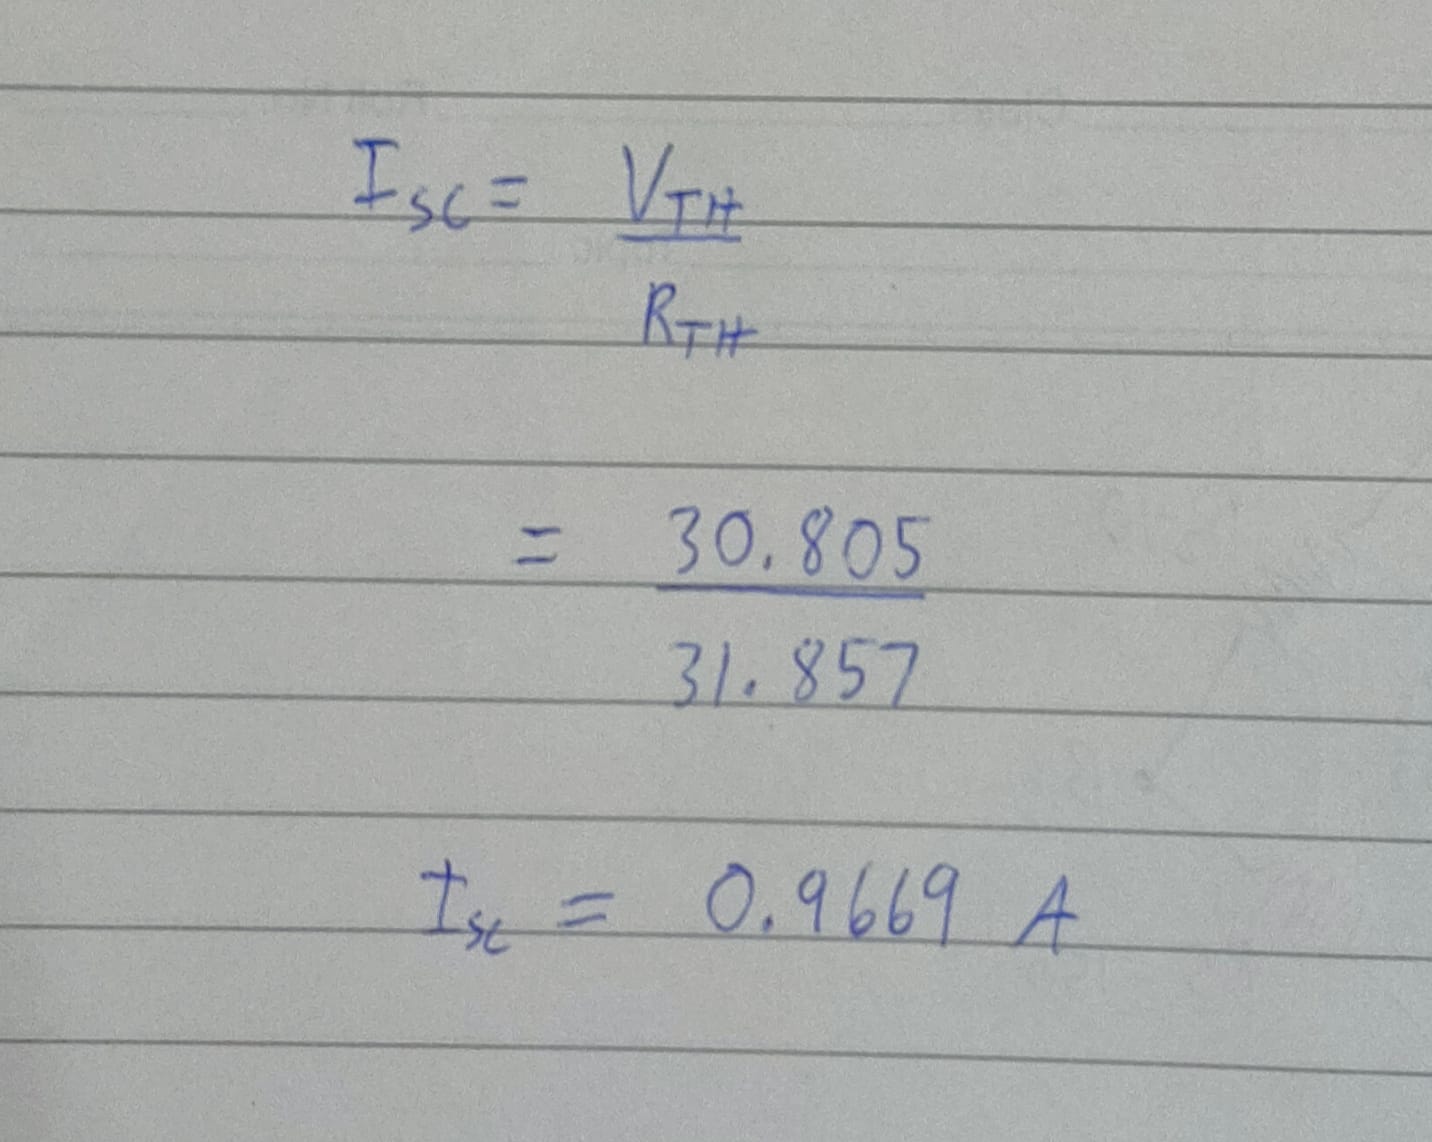 I_SC = V_TH
R_TH
= 30.805
31.857
I_SC = 0.9669 A